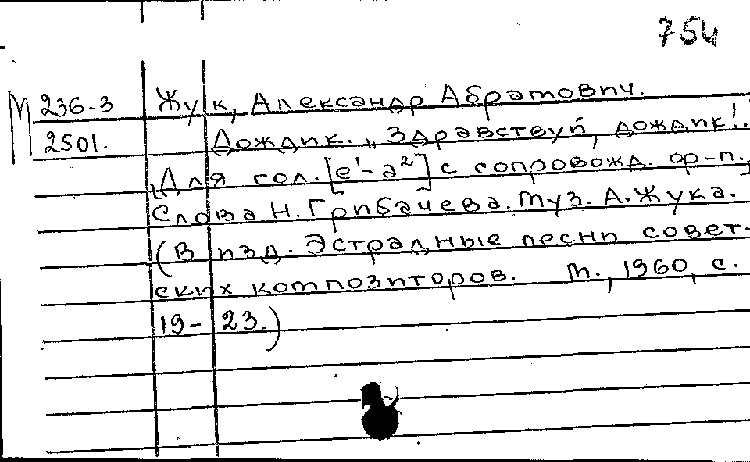 754
М 236-3 Жук, Александр Абрамович.
2501. Дождик. „Здравствуй, дождик!..
Для гол. [e¹-a²] с сопровожд. ф-п.,
Слова Н. Грибачева. Муз. А. Жука.
(В изд. Эстрадные песни совет-
ских композиторов. М., 1960, с.
19-23.)